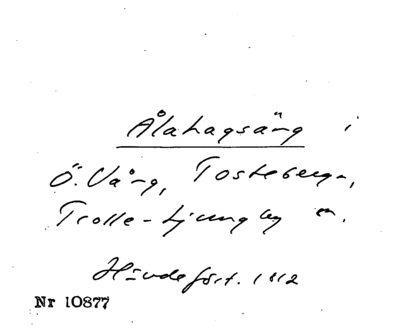 Ålahagsäng i
Ö. Vång, Tosteberga,
Trolle-Ljungby sn.
Händ. först. 1812
Nr 10877